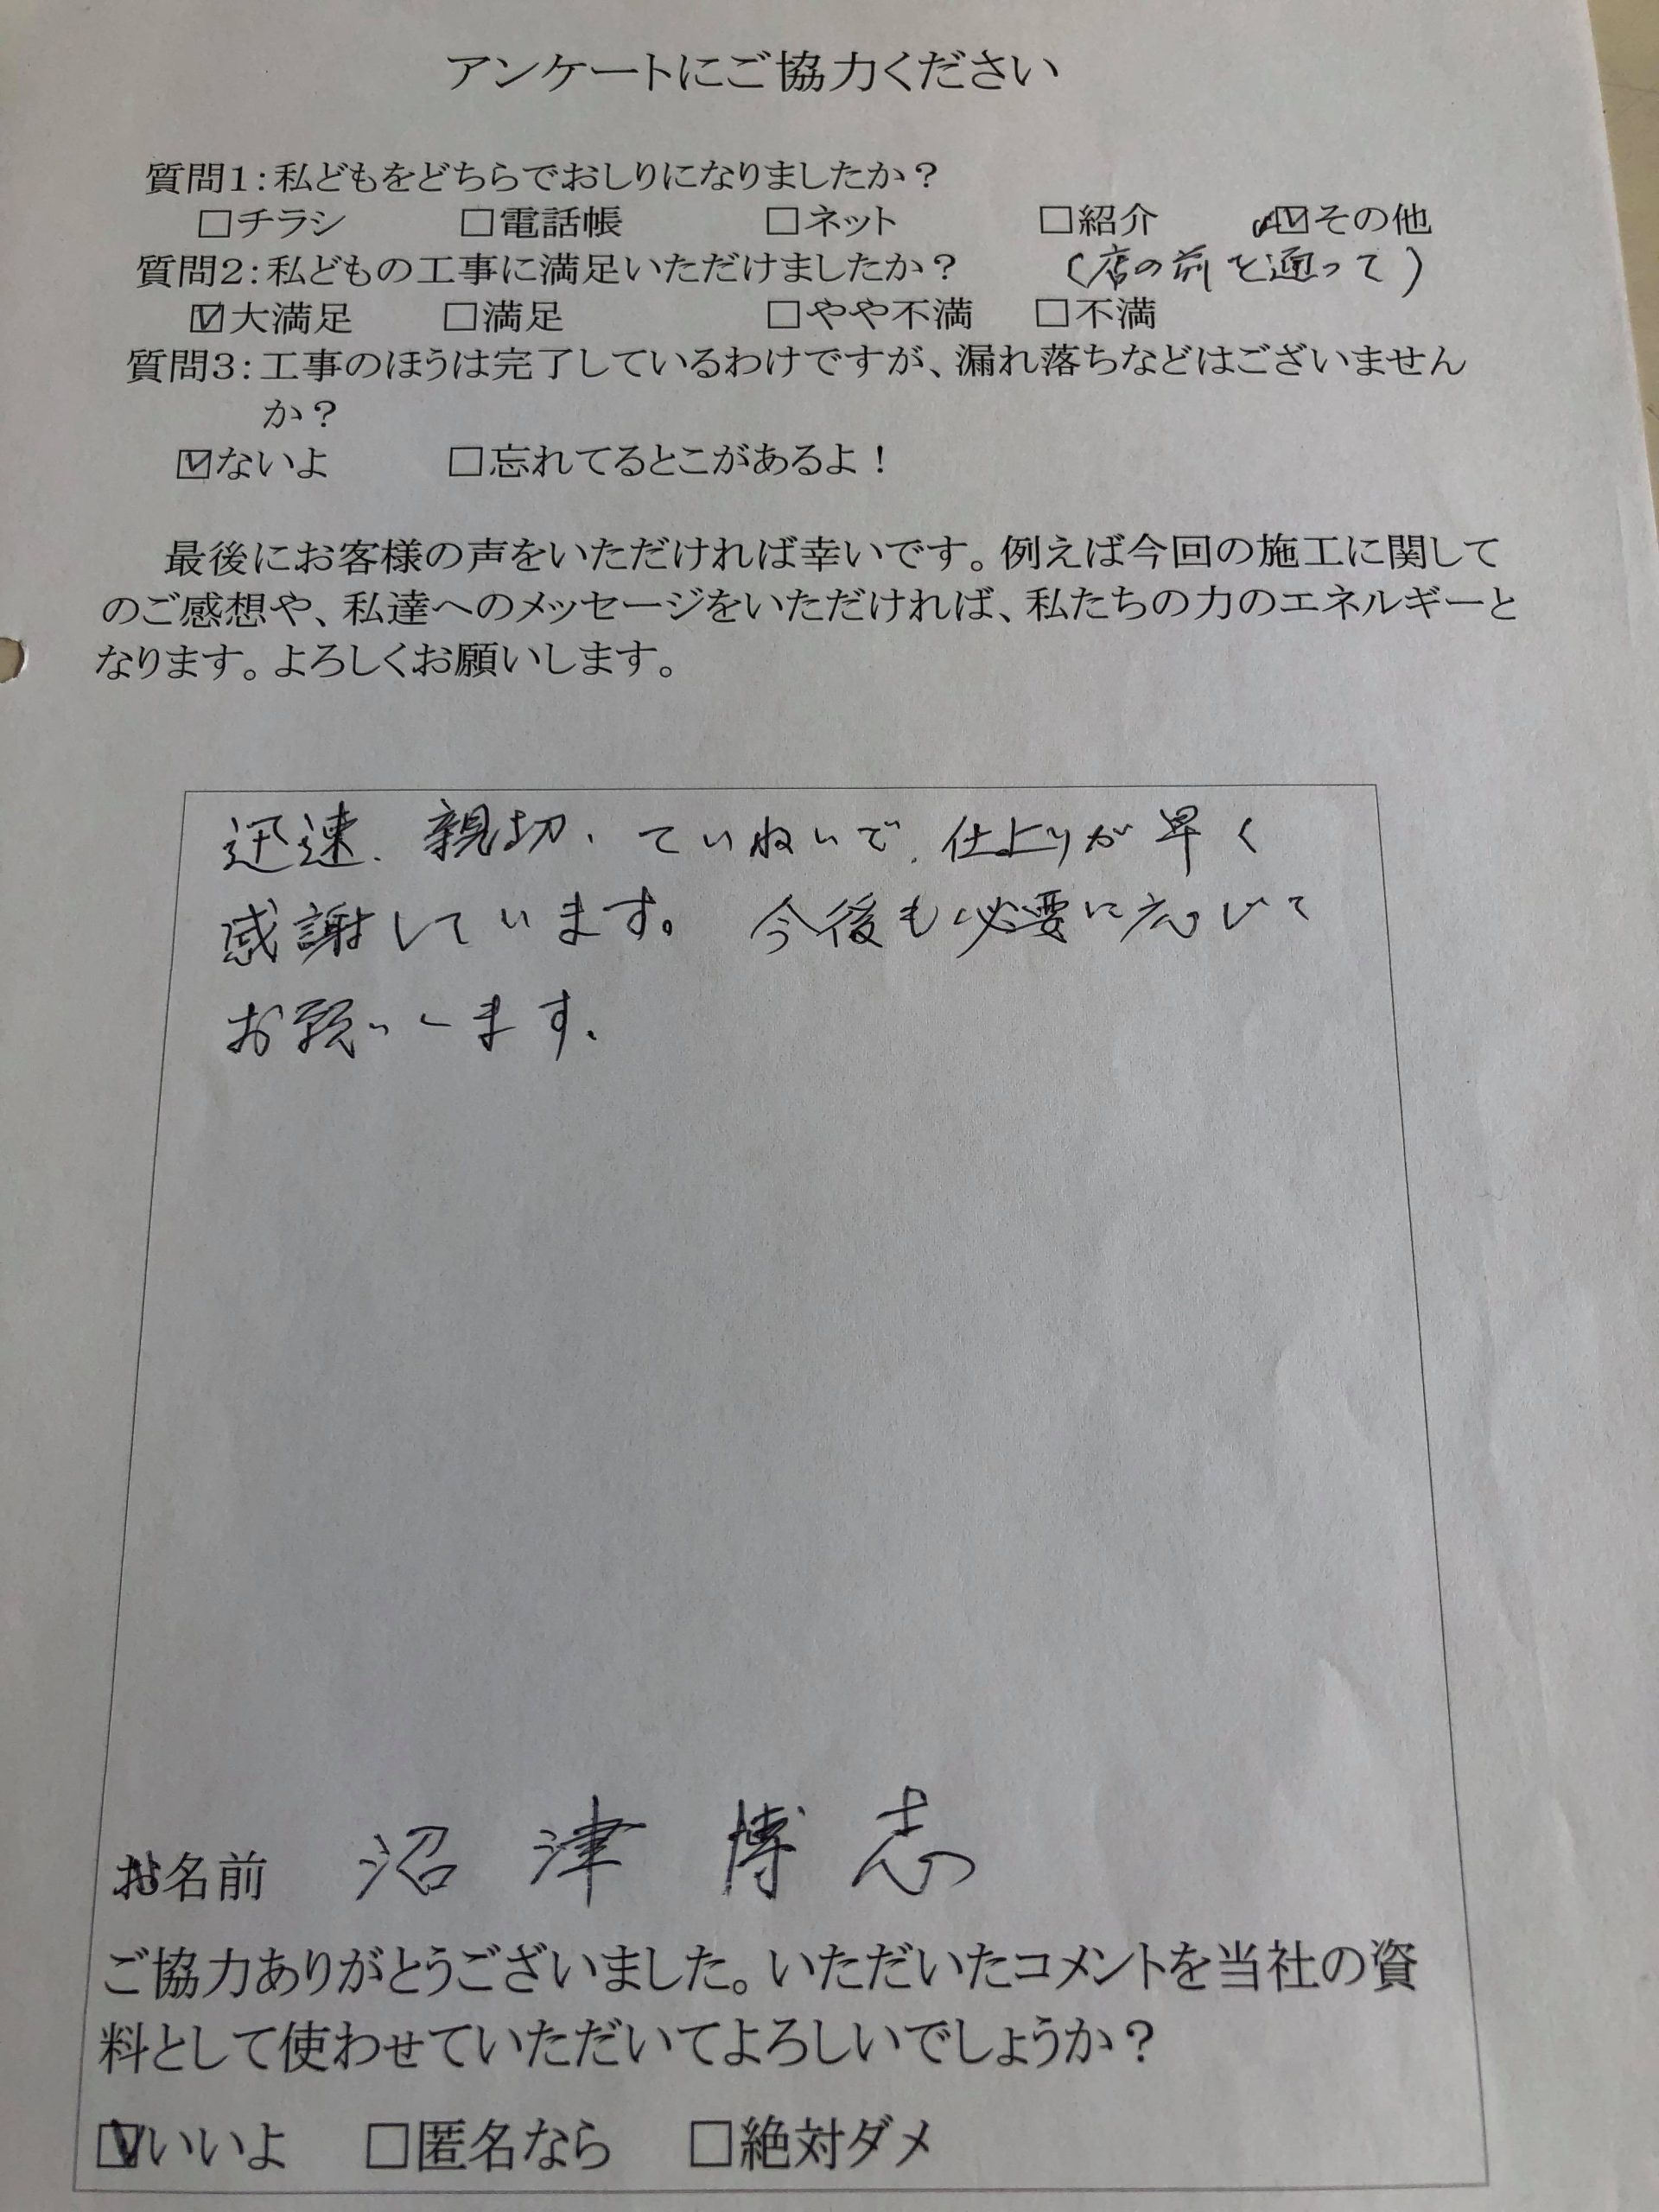 アンケートにご協力ください
質問1:私どもをどちらでおしりになりましたか？
□チラシ □電話帳 □ネット □紹介 ☑その他
質問2:私どもの工事に満足いただけましたか？ (店の前を通って)
☑大満足 □満足 □やや不満 □不満
質問3:工事のほうは完了しているわけですが、漏れ落ちなどはございません
か？
☑ないよ □忘れてるとこがあるよ！
最後にお客様の声をいただければ幸いです。例えば今回の施工に関して
のご感想や、私達へのメッセージをいただければ、私たちの力のエネルギーと
なります。よろしくお願いします。
迅速、親切、ていねいで、仕上りが早く
感謝しています。今後も必要に応じて
お願いします。
お名前 沼津博志
ご協力ありがとうございました。いただいたコメントを当社の資
料として使わせていただいてよろしいでしょうか？
☑いいよ □匿名なら □絶対ダメ